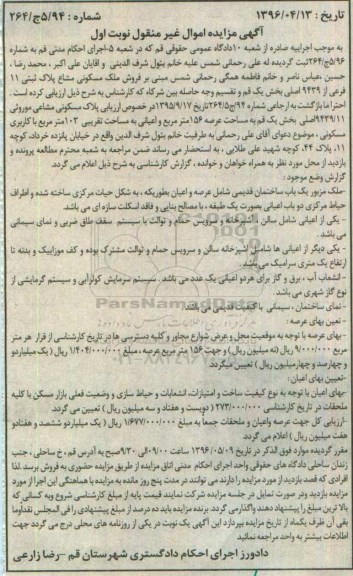 تاریخ : ۱۳۹۶/۰۴/۱۳ شماره : ۵/۹۴ج/۲۶۴
آگهی مزایده اموال غیر منقول نوبت اول
به موجب اجراییه صادره از شعبه ۱۰دادگاه عمومی حقوقی قم که در شعبه ۵-اجرای احکام مدنی قم به شماره
۵/۹۶ج/۲۶۴ثبت گردیده له علی رحمانی شمس علیه خانم بتول شرف الدینی و آقایان علی اکبر ، محمد رضا ،
حسین ،عباس ناصر و خانم فاطمه همگی رحمانی شمس مبنی بر فروش ملک مسکونی مشاع پلاک ثبتی ۱۱
فرعی از ۹۴۳۹ اصلی بخش یک قم و تقسیم وجه حاصله بین شرکاء که کارشناس به شرح ذیل ارزیابی کرده است .
احترما بازگشت به ارجاعی شماره ۵/۹۴ج/۲۶۴تاریخ ۱۳۹۵/۹/۱۷درخصوص ارزیابی پلاک مسکونی مشاعی موروثی
۹۴۳۹/۱۱اصلی بخش یک قم به مساحت عرصه ۱۵۶متر مربع و اعیانی به مساحت تقریبی ۱۰۲متر مربع با کاربری
مسکونی ، موضوع دعوای آقای علی رحمانی به طرفیت خانم بتول شرف الدین واقع در خیابان پانزده خرداد، کوچه
۱۱، پلاک ۴۴، کوچه شهید علی طلایی ، به استحضار می رساند ضمن مراجعه به شعبه محترم مطالعه پرونده و
بازدید از محل مورد نظر به همراه خواهان و خوانده ، گزارش کارشناسی به شرح ذیل اعلام می گردد.
گزارش وضع موجود :
-ملک مزبور یک باب ساختمان قدیمی شامل عرصه و اعیان بطوریکه ، به شکل حیات مرکزی ساخته شده و اطراف
حیاط مرکزی دو باب اعیانی بصورت یک طبقه ، با مصالح بنایی و فاقد اسکلت سازه ای می باشد.
- یکی از اعیانی شامل سالن ، آشپزخانه و سرویس حمام و توالت با سیستم سقف طاق ضربی و نمای سیمانی
می باشد.
- یکی دیگر از اعیانی ها شامل آشپزخانه سالن و سرویس حمام و توالت مشترک بوده و کف موزاییک و بدنه تا
ارتفاع یک متری سرامیک می باشد .
- انشعاب آب ، برق و گاز برای هردو اعیانی یک عدد می باشد . سیستم سرمایش کولرآبی و سیستم گرمایشی از
نوع گاز شهری می باشد.
- نمای ساختمان ، سیمانی با کیفیت قدیمی می باشد.
- تعیین بهای عرصه :
-بهای عرصه با توجه به موقعیت محل و عرض شوارع مجاور و کلیه دسترسی ها در تاریخ کارشناسی از قرار هر متر
مربع ۹/۰۰۰/۰۰۰ ریال (نه میلیون ریال) و جهت ۱۵۶ متر مربع عرصه ، مبلغ ۱/۴۰۴/۰۰۰/۰۰۰ ریال ( یک میلیاردو
و چهارصد و چهارمیلیون ریال ) تعیین میگردد.
-تعیین بهای اعیان :
-بهای اعیان با توجه به نوع کیفیت ساخت و امتیازات، انشعابات و حیاط سازی و وضعیت فعلی بازار مسکن با کلیه
ملحقات در تاریخ کارشناسی ۲۷۳/۰۰۰/۰۰۰ ( دویست و هفتاد و سه میلیون ریال ) تعیین می گردد.
-ارزیابی کل جهت عرصه واعیان و ملحقات جمعا به مبلغ ۱/۶۷۷/۰۰۰/۰۰۰ ریال ( یک میلیاردو ششصد و هفتادو
هفت میلیون ریال ) اعلام می گردد.
مقرر گردیده موارد فوق الذکر در تاریخ ۱۳۹۶/۰۵/۰۹ ساعت ۹/۰۰الی ۹/۳۰صبح به آدرس قم ، خ ساحلی ، جنب
زندان ساحلی دادگاه های حقوقی واحد اجرای احکام مدنی اتاق مزایده از طریق مزایده حضوری به فروش برسد .لذا
افرادی که قصد بازدید از مورد مزایده را دارند می توانند در مدت پنج روز مانده به مزایده با هماهنگی این اجرا از مورد
مزایده بازدید ودر صورت تمایل در جلسه مزایده شرکت نمایند. قیمت پایه از مبلغ کارشناسی شروع وبه کسانی که
بالا ترین مبلغ را پیشنهاد دهند واگذارمی گردد. برنده مزایده باید ده درصد از مبلغ پیشنهادی را فی المجلس نقداًوما
بقی آن ظرف یکماه از تاریخ مزایده بپردازد این آگهی یک نوبت در یکی از روزنامه های محلی درج می گردد جهت
اطلاعات بیشتر به واحد مراجعه نمایید
دادورز اجرای احکام دادگستری شهرستان قم -رضا زارعی
ParsNamadData